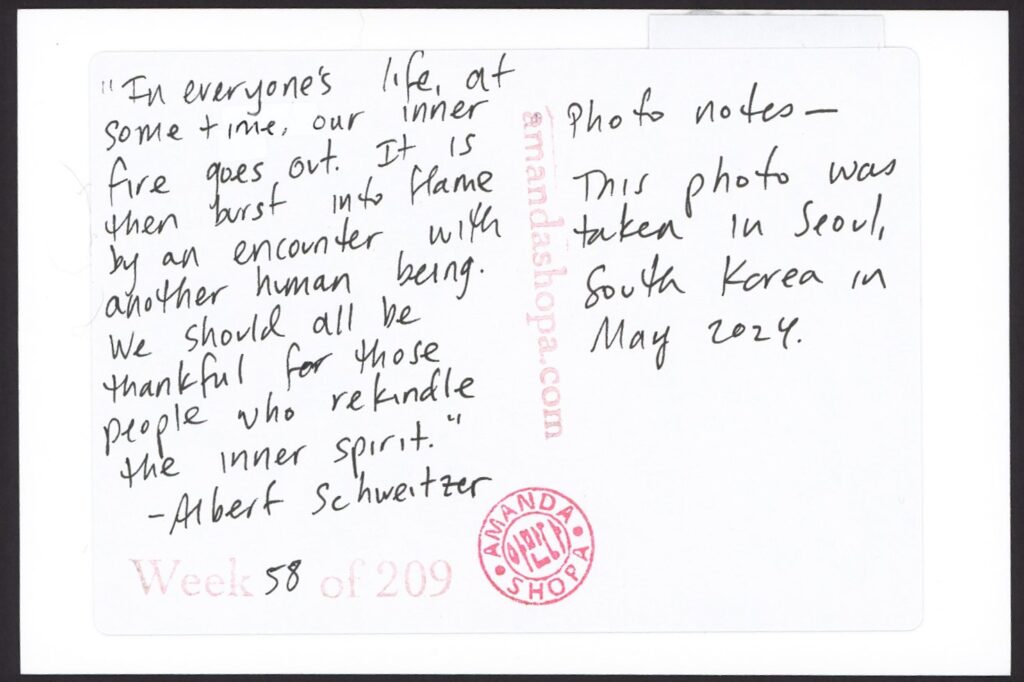 "In everyone's life, at
some time, our inner
fire goes out. It is
then burst into flame
by an encounter with
another human being.
We should all be
thankful for those
people who rekindle
the inner spirit."
-Albert Schweitzer
Week 58 of 209
amandashopa.com
AMANDA SHOPA
아만다
Photo notes—
This photo was
taken in Seoul,
South Korea in
May 2024.